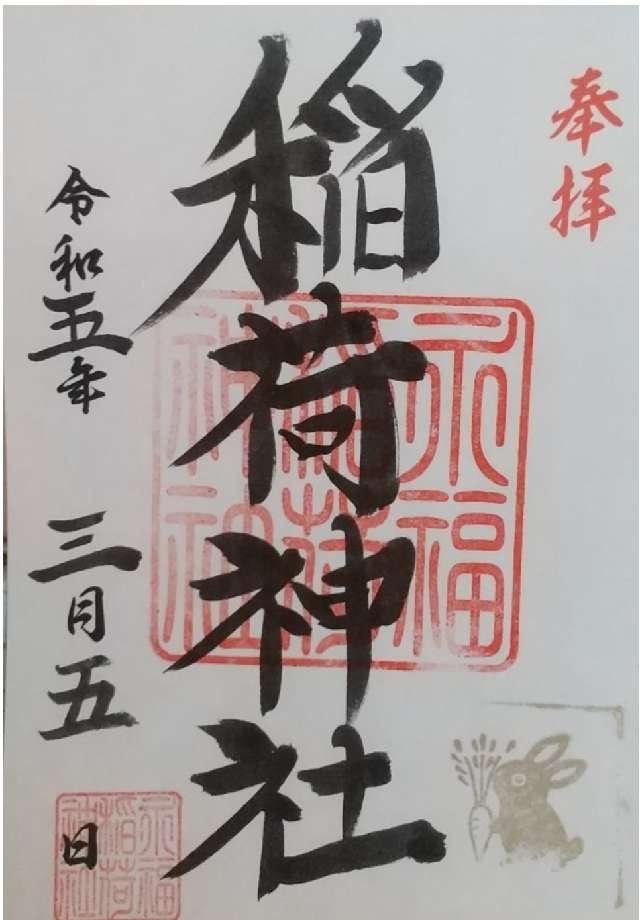 奉拝
稲荷神社
永福
稲荷
神社
令和五年 三月五日
永福
稲荷
神社